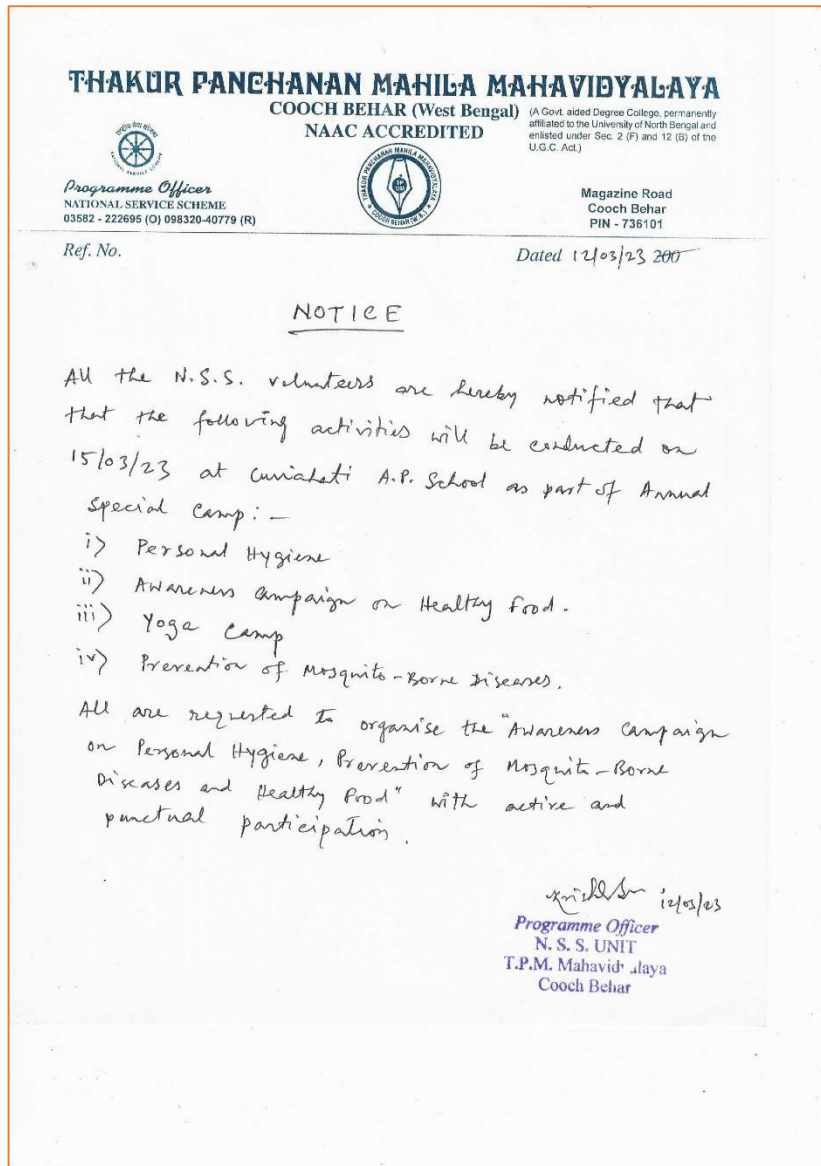 THAKUR PANCHANAN MAHILA MAHAVIDYALAYA
COOCH BEHAR (West Bengal)
NAAC ACCREDITED
(A Govt. aided Degree College, permanently
affiliated to the University of North Bengal and
enlisted under Sec. 2 (F) and 12 (B) of the
U.G.C. Act.)
Programme Officer
NATIONAL SERVICE SCHEME
03582 - 222695 (O) 098320-40779 (R)
THAKUR PANCHANAN MAHILA MAHAVIDYALAYA
COOCH BEHAR (W.B.)
Magazine Road
Cooch Behar
PIN - 736101
Ref. No.
Dated 12/03/23 200
NOTICE
All the N.S.S. volunteers are hereby notified that
that the following activities will be conducted on
15/03/23 at A.P. School as part of Annual
Special Camp: -
i) Personal Hygiene
ii) Awareness Campaign on Healthy Food.
iii) Yoga Camp
iv) Prevention of Mosquito-Borne Diseases.
All are requested to organise the "Awareness Campaign
on Personal Hygiene, Prevention of Mosquito-Borne
Diseases and Healthy Food" with active and
punctual participation.
12/03/23
Programme Officer
N. S. S. UNIT
T.P.M. Mahavid alaya
Cooch Behar